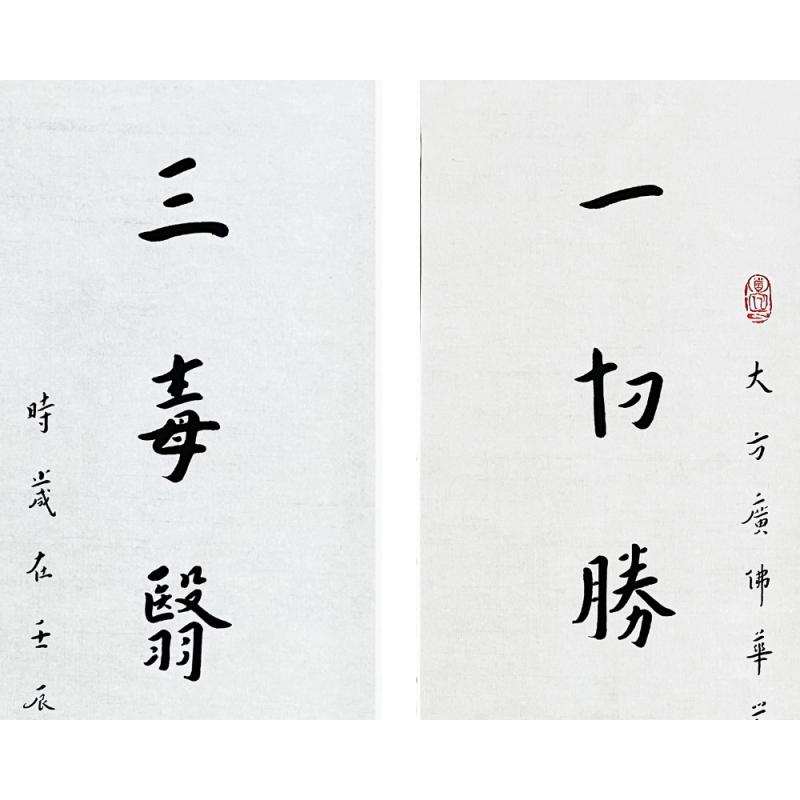 大方廣佛華
一切勝
三毒翳
時歲在壬辰